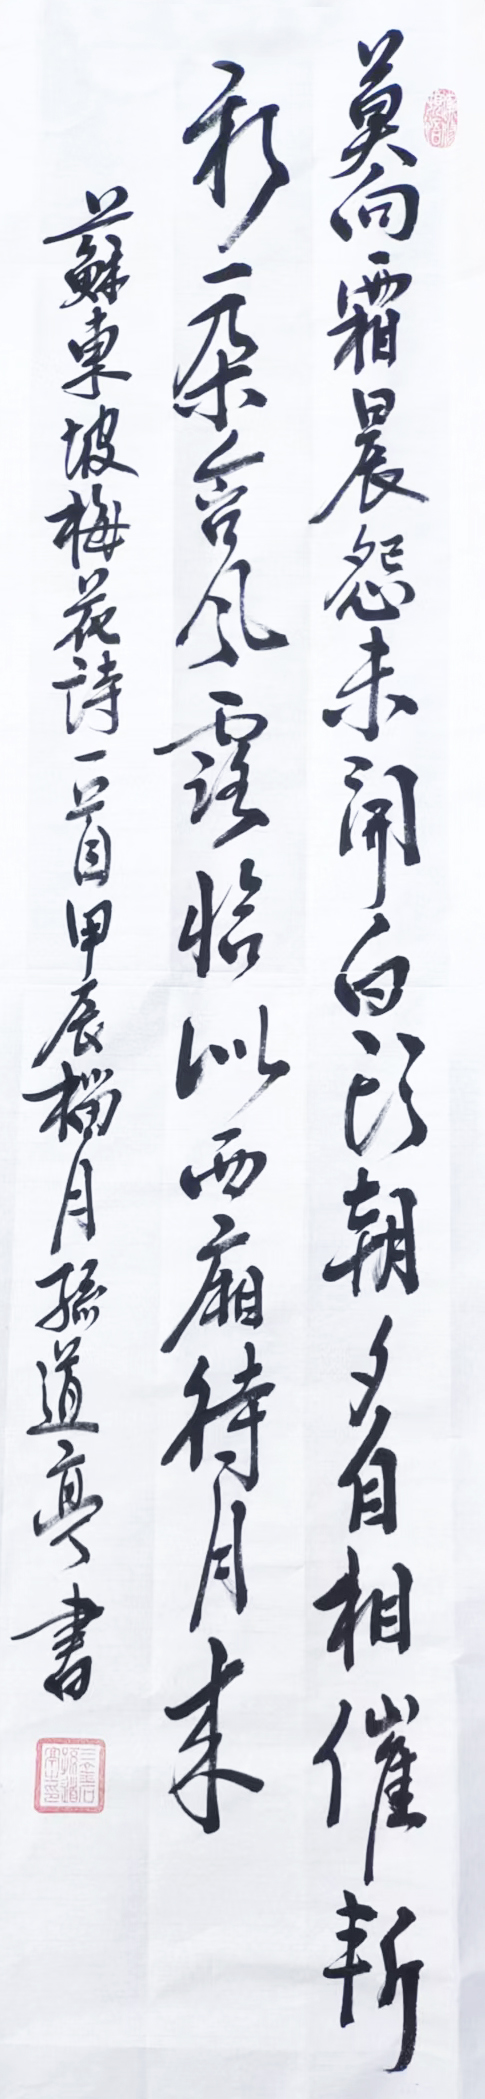 莫向霜晨怨未開白頭朝夕自相催斬
新一朵含風露恰似西廂待月來
蘇東坡梅花詩一首甲辰榴月孫道亭書